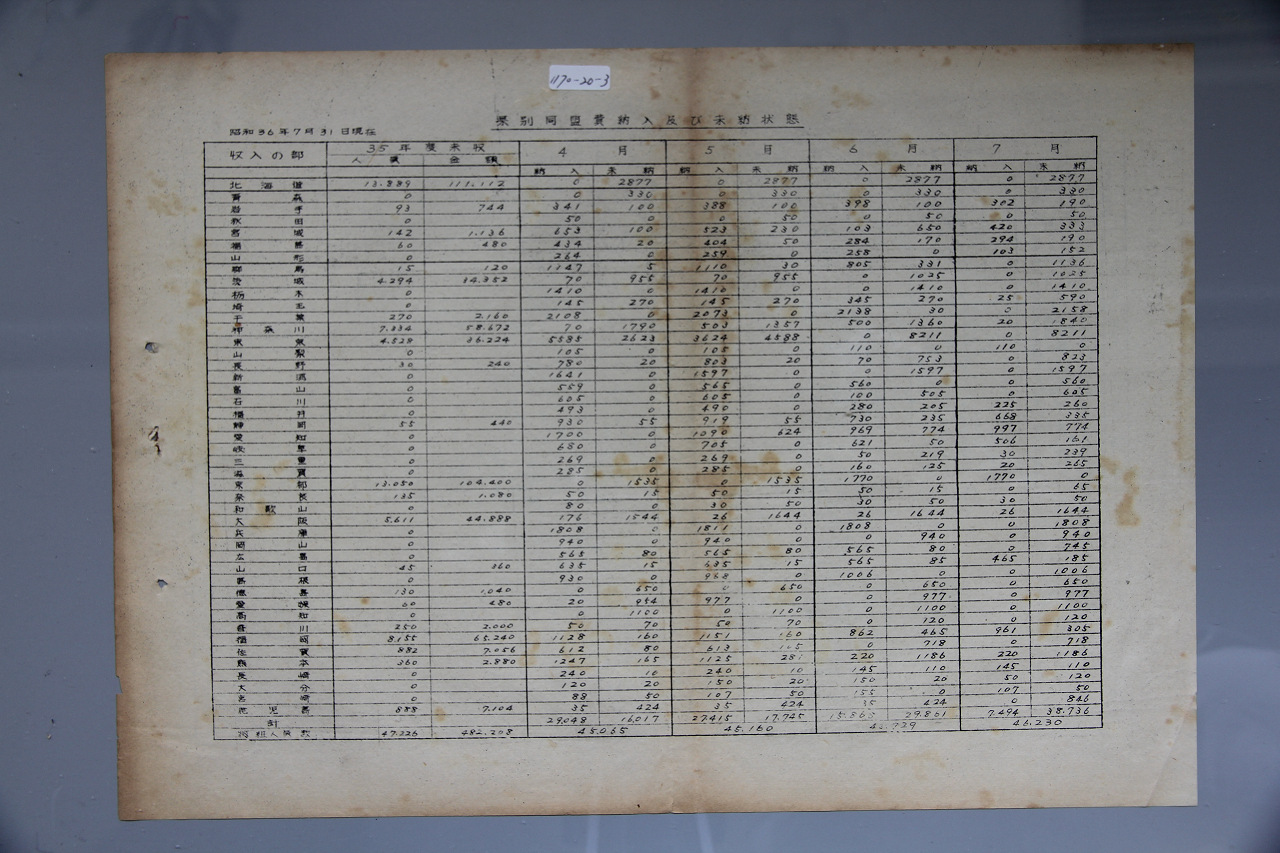 1170-20-3
県別同盟費納入及び未納状態
昭和36年7月31日現在
収入の部 35年度未収 4月 5月 6月 7月
人員 金額 納入 未納 納入 未納 納入 未納 納入 未納
北海道 13.889 111.112 0 2877 0 2877 0 2877 0 2877
青森 0 0 330 0 330 0 330 0 330
岩手 93 744 341 100 388 100 398 100 302 190
秋田 0 50 0 0 50 0 50 0 50
宮城 142 1.136 653 100 523 230 103 650 420 333
福島 60 480 434 20 404 50 284 170 294 190
山形 0 264 0 259 0 258 0 103 152
群馬 15 120 1147 5 1110 30 805 331 0 1136
茨城 4.294 34.352 70 955 70 955 0 1025 0 1025
栃木 0 1410 0 1410 0 0 1410 0 1410
埼玉 0 145 270 145 270 345 270 25 590
千葉 270 2.160 2108 0 2073 0 2138 30 0 2158
神奈川 7.334 58.672 70 1790 503 1357 500 1360 20 1840
東京 4.528 36.224 5585 2623 3624 4588 0 8211 0 8211
山梨 0 105 0 105 0 110 0 110 0
長野 30 240 780 20 803 20 70 753 0 823
新潟 0 1641 0 1597 0 0 1597 0 1597
富山 0 559 0 565 0 560 0 0 560
石川 0 605 0 605 0 100 505 0 605
福井 0 493 0 490 0 280 205 225 260
静岡 55 440 930 55 919 55 730 235 668 335
愛知 0 1700 0 1090 624 969 774 997 774
岐阜 0 680 0 705 0 621 50 506 161
三重 0 269 0 269 0 50 219 30 239
滋賀 0 285 0 285 0 160 125 20 265
京都 13.050 104.400 0 1535 0 1535 1770 0 1770 0
奈良 135 1.080 50 15 50 15 50 15 0 65
和歌山 0 80 0 30 50 30 50 30 50
大阪 5.611 44.888 176 1544 26 1644 26 1644 26 1644
兵庫 0 1808 0 1811 0 1808 0 0 1808
岡山 0 940 0 940 0 0 940 0 940
広島 0 565 80 565 80 565 80 0 745
山口 45 360 635 15 635 15 565 85 465 185
島根 0 930 0 968 0 1006 0 0 1006
徳島 130 1.040 0 650 0 650 0 650 0 650
愛媛 60 480 20 954 977 0 0 977 0 977
高知 0 0 1100 0 1100 0 1100 0 1100
香川 250 2.000 50 70 50 70 0 120 0 120
福岡 8.155 65.240 1128 160 1151 160 862 465 961 305
佐賀 882 7.056 612 80 613 105 0 718 0 718
熊本 360 2.880 1247 165 1125 28 220 1186 220 1186
長崎 0 240 10 240 10 145 110 145 110
大分 0 120 20 150 20 150 20 50 120
宮崎 0 88 50 107 50 155 0 107 50
鹿児島 888 7.104 35 424 35 424 35 424 0 846
計 29.048 16.017 27.415 17.745 15.865 29.801 7.494 38.736
組人員数 47.226 482.208 45.065 45.160 46.230